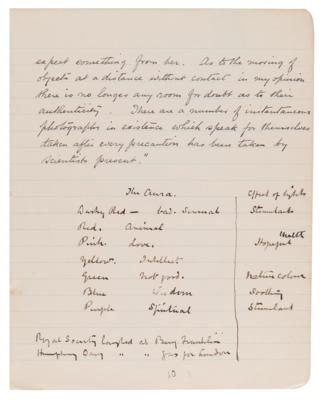 expect something from her. As to the moving of
objects at a distance without contact in my opinion
there is no longer any room for doubt as to their
authenticity. There are a number of instantaneous
photographs in existence which speak for themselves
taken after every precaution has been taken by
scientists present."
The Aura. Effect of lights
Dusky Red — bad. Sensual Stimulants
Red. Animal
Pink. Love. Hopeful Health
Yellow. Intellect
Green Not good. Natures colour
Blue Wisdom Soothing
Purple Spiritual Stimulant
Royal Society laughed at Benj Franklin
Humphry Davy " " gas for London
10